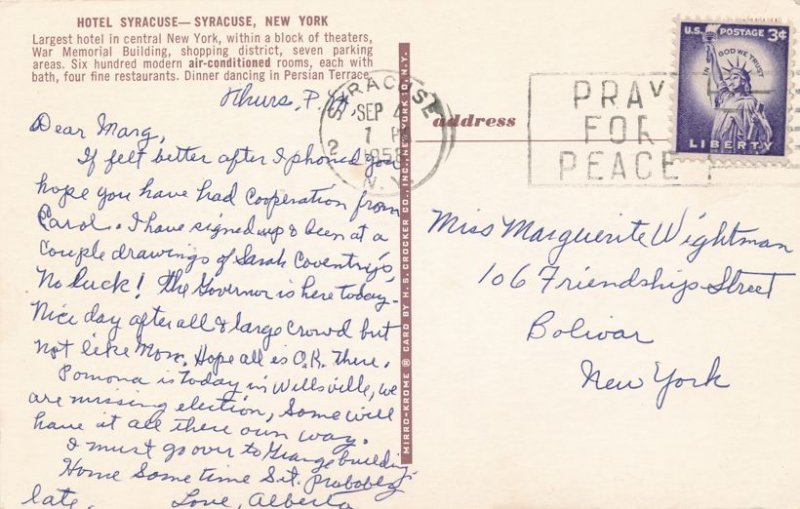 HOTEL SYRACUSE— SYRACUSE, NEW YORK
Largest hotel in central New York, within a block of theaters,
War Memorial Building, shopping district, seven parking
areas. Six hundred modern air-conditioned rooms, each with
bath, four fine restaurants. Dinner dancing in Persian Terrace.
Thurs, P.M.
Dear Marg,
If felt better after I phoned you
hope you have had cooperation from
Carol. I have signed up & been at a
couple drawings of Sarah Coventry's,
No luck! The Governor is here today.
Nice day after all & large crowd but
not like Mon. Hope all is O.K. there.
Pomona is today in Wellsville, we
are missing election, Some will
have it all there own way.
I must go over to Grange building.
Home Some time Sat. probably
late. Love, Alberta
MIRRO-KROME ® CARD BY H.S. CROCKER CO., INC., NEW YORK 10, N.Y.
address
SYRACUSE
SEP 4
1958
2
N.Y.
PRAY
FOR
PEACE
U.S. POSTAGE 3¢
IN GOD WE TRUST
LIBERTY
Miss Marguerite Wightman
106 Friendship Street
Bolivar
New York